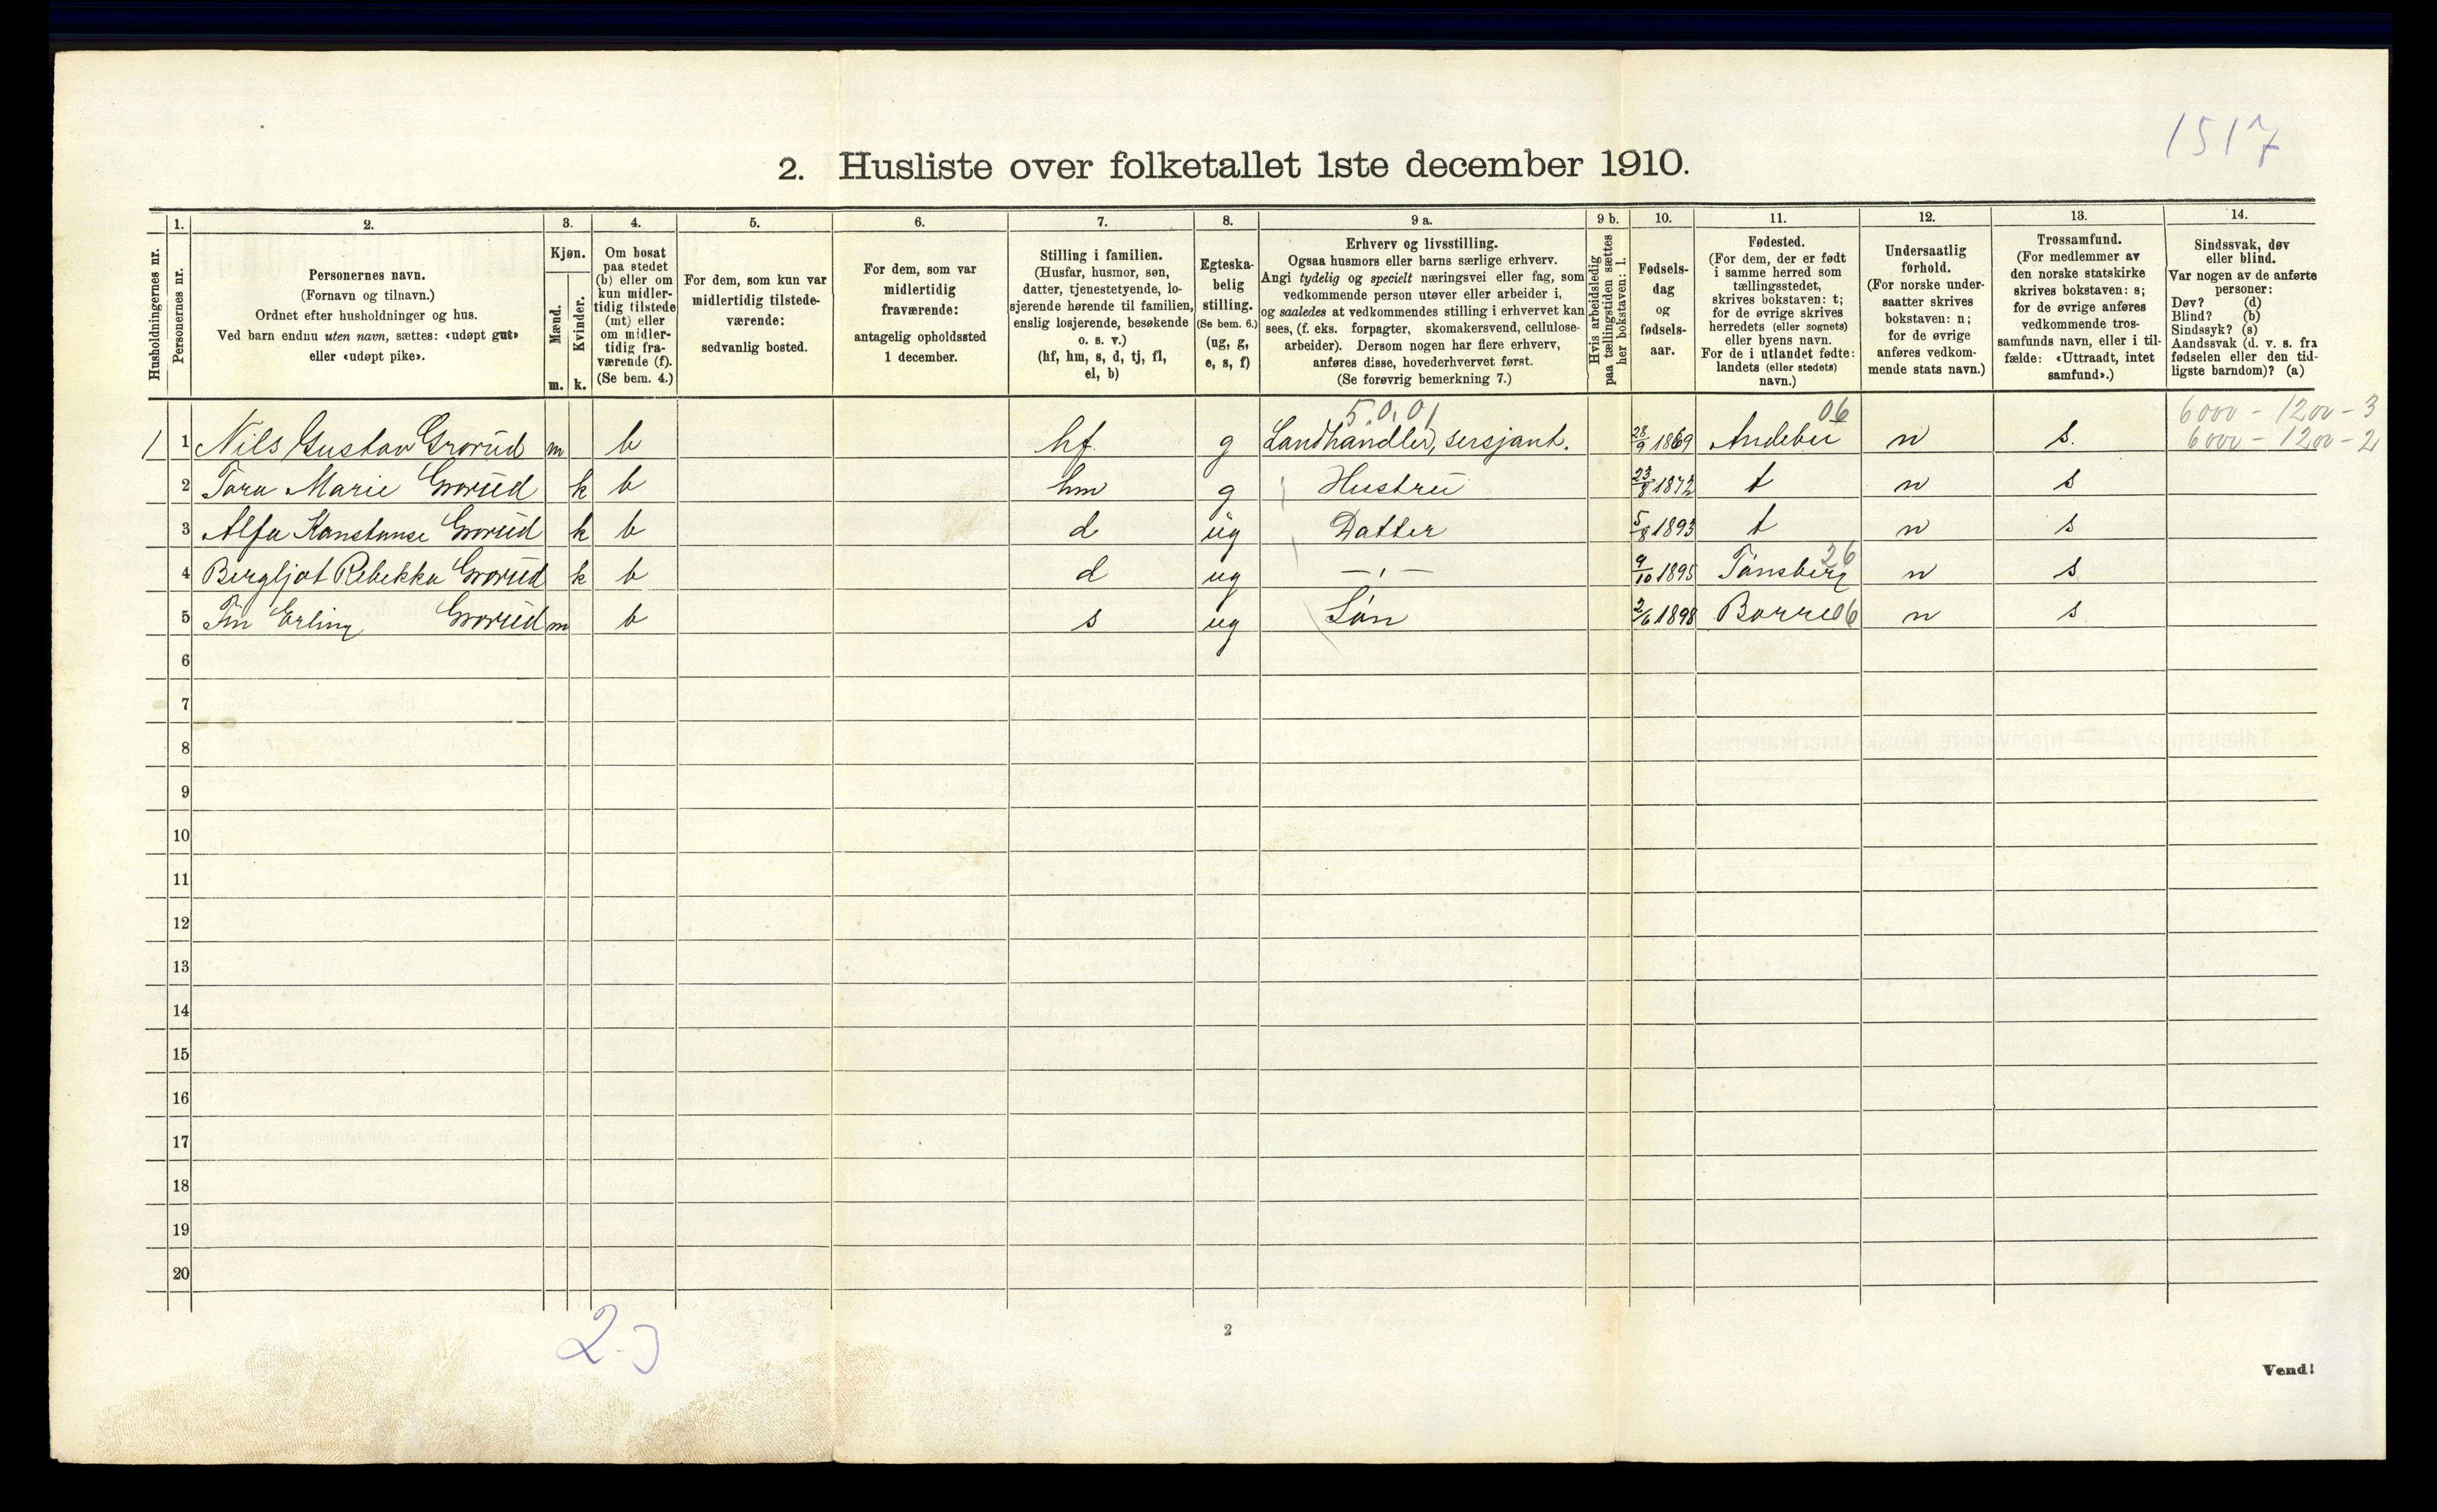 1517
2. Husliste over folketallet 1ste december 1910.
Husholdningernes nr.
1.
Personernes nr.
2.
Personernes navn.
(Fornavn og tilnavn.)
Ordnet efter husholdninger og hus.
Ved barn endnu uten navn, sættes: «udøpt gut»
eller «udøpt pike».
3.
Kjøn.
Mænd.
Kvinder.
m. k.
4.
Om bosat
paa stedet
(b) eller om
kun midler-
tidig tilstede
(mt) eller
om midler-
tidig fra-
værende (f).
(Se bem. 4.)
5.
For dem, som kun var
midlertidig tilstede-
værende:
sedvanlig bosted.
6.
For dem, som var
midlertidig
fraværende:
antagelig opholdssted
1 december.
7.
Stilling i familien.
(Husfar, husmor, søn,
datter, tjenestetyende, lo-
sjerende hørende til familien,
enslig losjerende, besøkende
o. s. v.)
(hf, hm, s, d, tj, fl,
el, b)
8.
Egteska-
belig
stilling.
(Se bem. 6.)
(ug, g,
e, s, f)
9 a.
Erhverv og livsstilling.
Ogsaa husmors eller barns særlige erhverv.
Angi tydelig og specielt næringsvei eller fag, som
vedkommende person utøver eller arbeider i,
og saaledes at vedkommendes stilling i erhvervet kan
sees, (f. eks. forpagter, skomakersvend, cellulose-
arbeider). Dersom nogen har flere erhverv,
anføres disse, hovederhvervet først.
(Se forøvrig bemerkning 7.)
9 b.
Hvis arbeidsledig
paa tællingstiden sættes
her bokstaven: l.
10.
Fødsels-
dag
og
fødsels-
aar.
11.
Fødested.
(For dem, der er født
i samme herred som
tællingsstedet,
skrives bokstaven: t;
for de øvrige skrives
herredets (eller sognets)
eller byens navn.
For de i utlandet fødte:
landets (eller stedets)
navn.)
12.
Undersaatlig
forhold.
(For norske under-
saatter skrives
bokstaven: n;
for de øvrige
anføres vedkom-
mende stats navn.)
13.
Trossamfund.
(For medlemmer av
den norske statskirke
skrives bokstaven: s;
for de øvrige anføres
vedkommende tros-
samfunds navn, eller i til-
fælde: «Uttraadt, intet
samfund».)
14.
Sindssvak, døv
eller blind.
Var nogen av de anførte
personer:
Døv? (d)
Blind? (b)
Sindssyk? (s)
Aandssvak (d. v. s. fra
fødselen eller den tid-
ligste barndom)? (a)
5.0.01 06 6000 - 1200 - 3
1 1 Nils Gustav Grorud m b hf. g Landhandler, sersjant. 28/9 1869 Andebu n s. 6000 - 1200 - 2
2 Tora Marie Grorud k b hm g Hustru 23/8 1872 t n s
3 Alfa Konstanse Grorud k b d ug Datter 5/8 1893 t n s
4 Bergljot Rebekka Grorud k b d ug — ' — 9/10 1895 Tønsberg 26 n s
5 Erling Grorud m b s ug Søn 2/6 1898 Borre 06 n s
6
7
8
9
10
11
12
13
14
15
16
17
18
19
20
2
Vend!